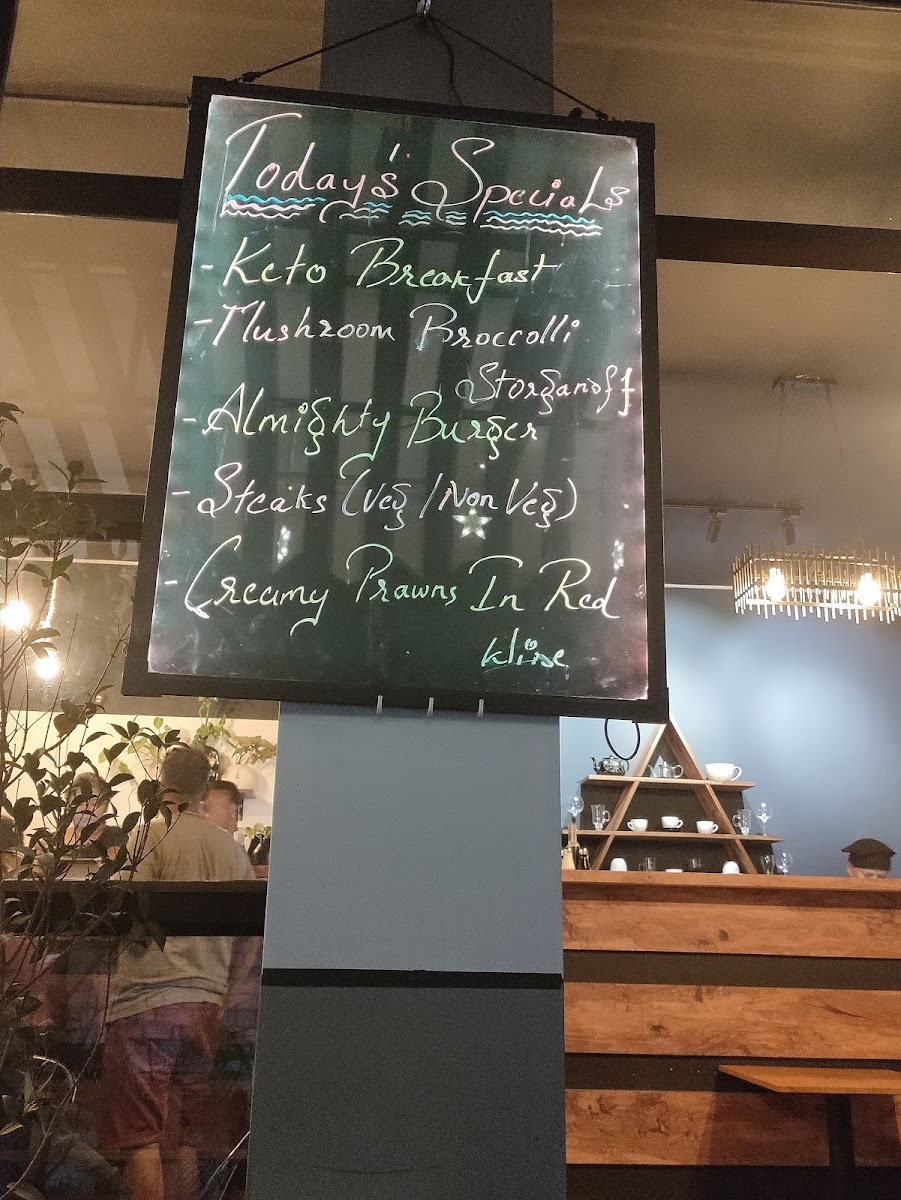 Today's Specials
- Keto Breakfast
- Mushroom Broccolli
Storganoff
- Almighty Burger
- Steaks (Veg / Non Veg)
- Creamy Prawns In Red